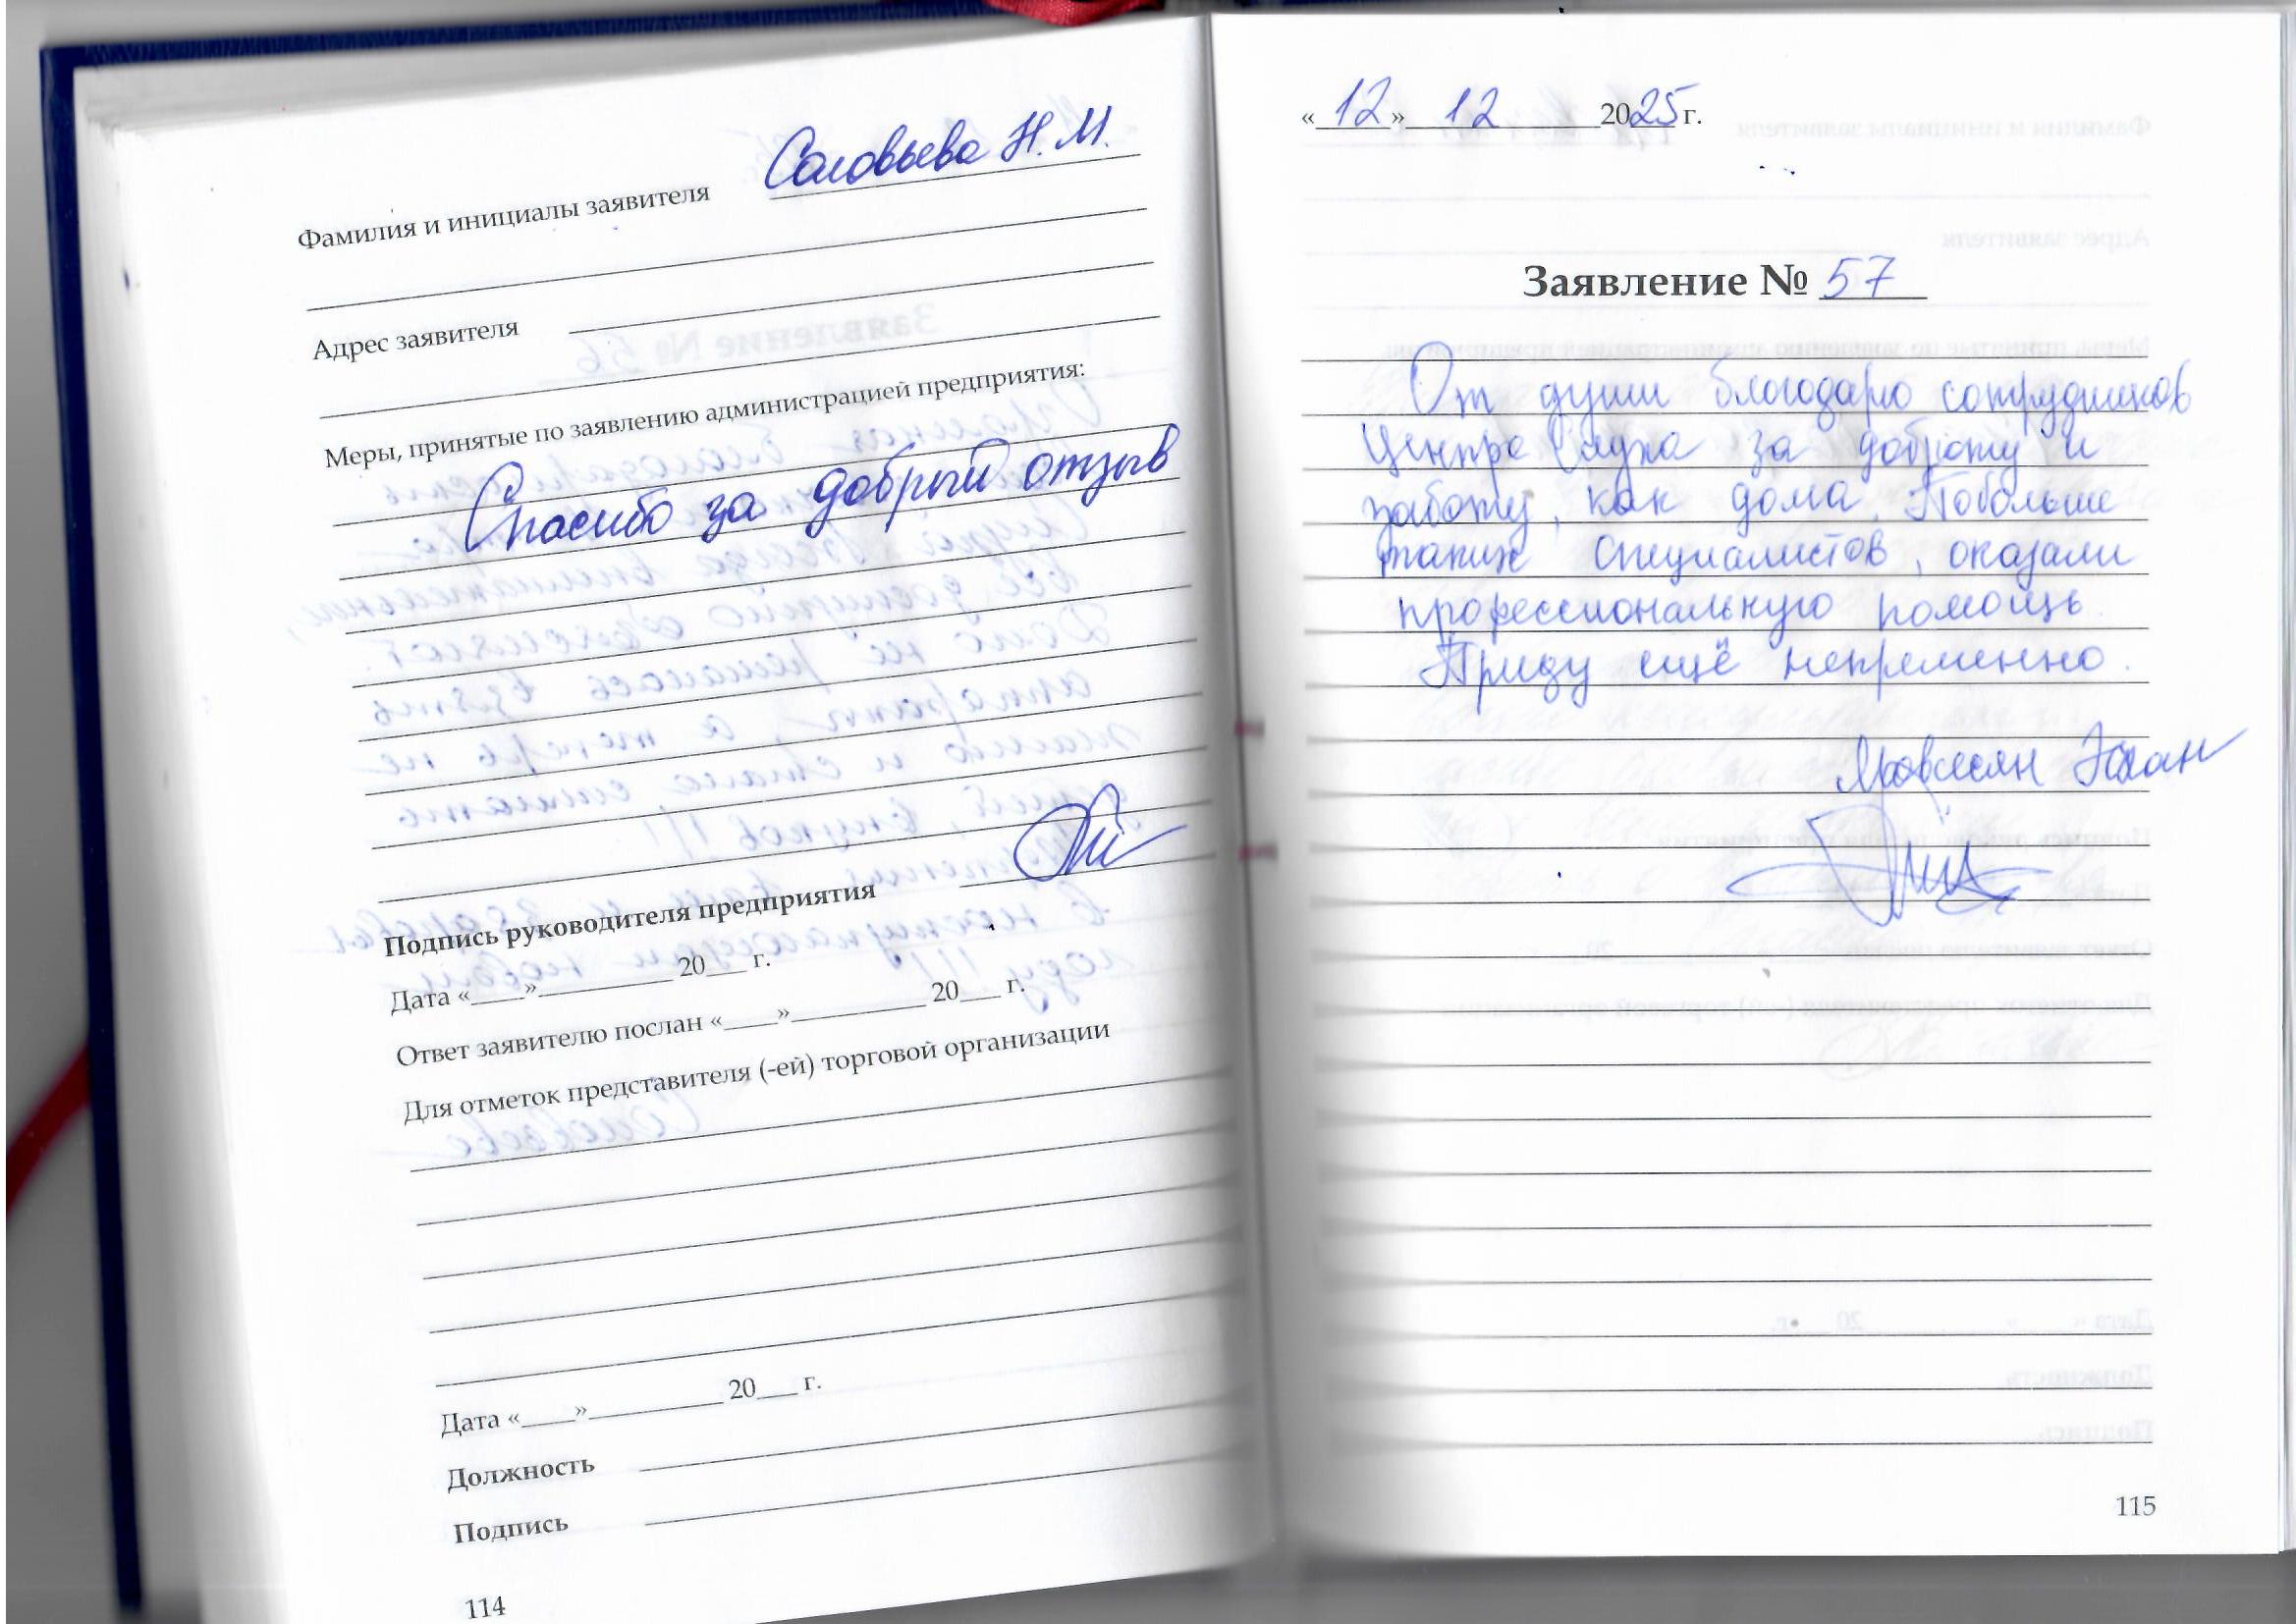 Фамилия и инициалы заявителя Соловьева Н.М.
Адрес заявителя
Меры, принятые по заявлению администрацией предприятия:
Спасибо за добрый отзыв
Подпись руководителя предприятия
Дата «____»__________ 20___ г.
Ответ заявителю послан «____»__________ 20___ г.
Для отметок представителя (-ей) торговой организации
Дата «____»__________ 20___ г.
Должность
Подпись
114
«12» 12 2025 г.
Заявление № 57
От души благодарю сотрудников
Центра Слуха за доброту и
заботу, как дома. Побольше
таких специалистов, оказали
профессиональную помощь.
Приду ещё непременно.
115